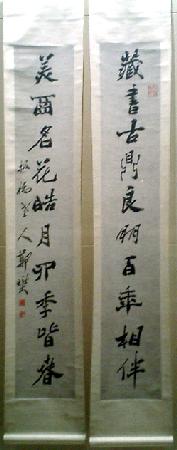 藏書古鼎良朋百年相伴
美酒名花皓月四季皆春
板橋老人鄭燮